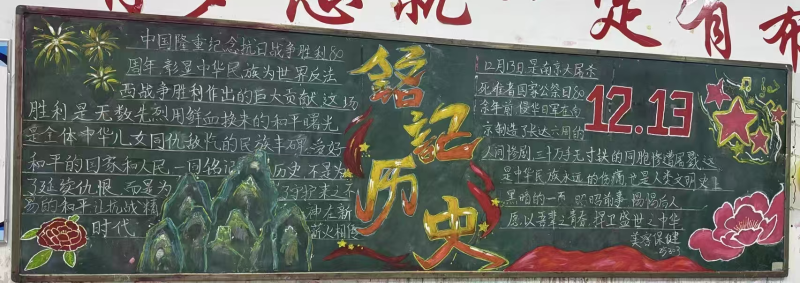 中国隆重纪念抗日战争胜利80
周年彰显中华民族为世界反法
西战争胜利作出的巨大贡献这场
胜利是无数先烈用鲜血换来的和平曙光
是全体中华儿女同仇敌忾的民族丰碑爱好
和平的国家和人民一同铭记 历史不是为
了延续仇恨而是为了 来之不
易的和平让抗战精神在新
时代 薪火相传
铭记历史
12月13日是南京大屠杀
死难者国家公祭日80
余年前侵华日军在南
京制造了长达六周的
人间惨剧三十万手无寸铁的同胞惨遭屠戮这
是中华民族永远的伤痛也是人类文明史上
黑暗的一页 昭昭前事惕惕后人
愿以吾辈之青春捍卫盛世之中华
12.13